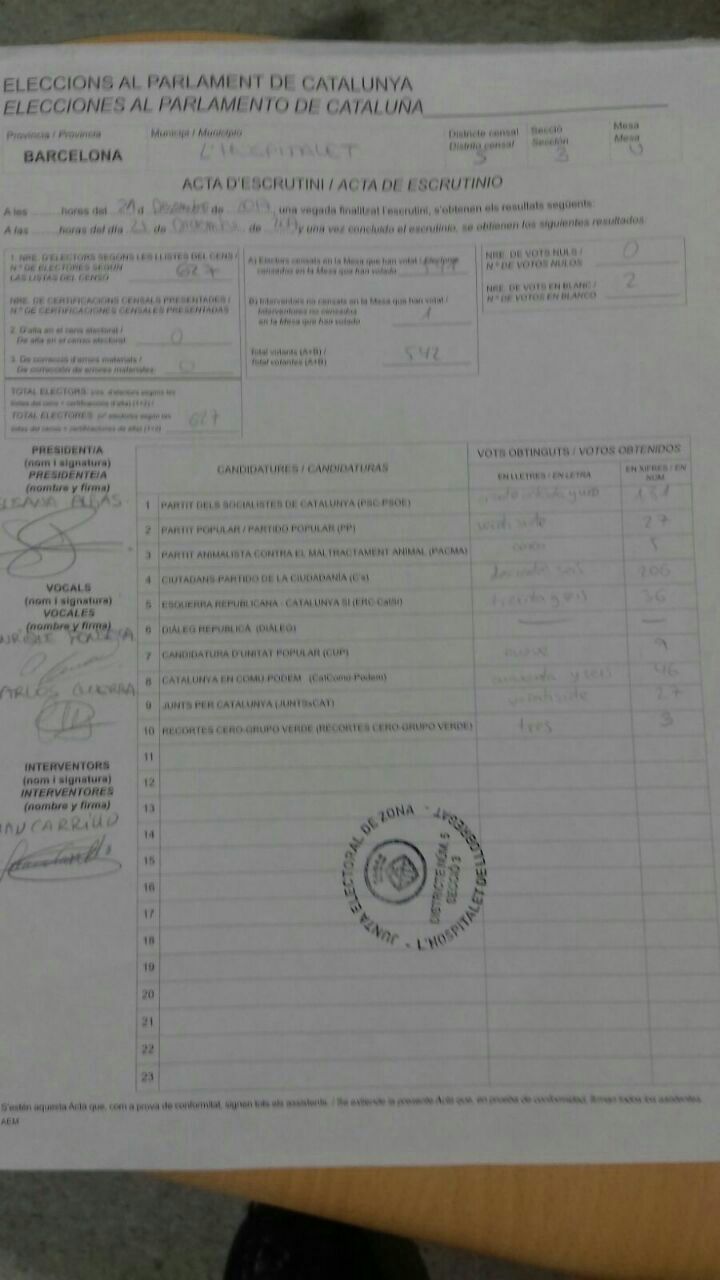 ELECCIONS AL PARLAMENT DE CATALUNYA
ELECCIONES AL PARLAMENTO DE CATALUÑA
Província / Provincia Municipi / Municipio Districte censal Secció Mesa
Distrito censal Sección Mesa
BARCELONA L'HOSPITALET 5 3 U
ACTA D'ESCRUTINI / ACTA DE ESCRUTINIO
A les hores del 21 d de 2017, una vegada finalitzat l'escrutini, s'obtenen els resultats següents:
A las horas del día 21 de de 2017 y una vez concluido el escrutinio, se obtienen los siguientes resultados:
1. NRE. D'ELECTORS SEGONS LES LLISTES DEL CENS /
Nº DE ELECTORES SEGÚN
LAS LISTAS DEL CENSO 627
NRE. DE CERTIFICACIONS CENSALS PRESENTADES /
Nº DE CERTIFICACIONES CENSALES PRESENTADAS
2. D'alta en el cens electoral /
De alta en el censo electoral 0
3. De correcció d'errors materials /
De corrección de errores materiales 0
TOTAL ELECTORS
TOTAL ELECTORES 627
A) Electors censats en la Mesa que han votat /
censados en la Mesa que han votado
B) Interventors no censats en la Mesa que han votat /
Interventores no censados
en la Mesa que han votado 1
Total votants (A+B) /
Total votantes (A+B) 542
NRE. DE VOTS NULS /
Nº DE VOTOS NULOS 0
NRE. DE VOTS EN BLANC /
Nº DE VOTOS EN BLANCO 2
PRESIDENT/A
(nom i signatura)
PRESIDENTE/A
(nombre y firma)
VOCALS
(nom i signatura)
VOCALES
(nombre y firma)
INTERVENTORS
(nom i signatura)
INTERVENTORES
(nombre y firma)
CARRILLO
CANDIDATURES / CANDIDATURAS VOTS OBTINGUTS / VOTOS OBTENIDOS
EN LLETRES / EN LETRA EN XIFRES / EN NÚM
1 PARTIT DELS SOCIALISTES DE CATALUNYA (PSC-PSOE) 181
2 PARTIT POPULAR / PARTIDO POPULAR (PP) 27
3 PARTIT ANIMALISTA CONTRA EL MALTRACTAMENT ANIMAL (PACMA) 5
4 CIUTADANS-PARTIDO DE LA CIUDADANÍA (C's) 206
5 ESQUERRA REPUBLICANA - CATALUNYA SÍ (ERC-CatSí) 36
6 DIÀLEG REPUBLICÀ (DIÀLEG) —
7 CANDIDATURA D'UNITAT POPULAR (CUP) nueve 9
8 CATALUNYA EN COMÚ-PODEM (CatComú-Podem) cuarenta y seis 46
9 JUNTS PER CATALUNYA (JUNTSxCAT) veintisiete 27
10 RECORTES CERO-GRUPO VERDE (RECORTES CERO-GRUPO VERDE) tres 3
11
12
13
14
15
16
17
18
19
20
21
22
23
JUNTA ELECTORAL DE ZONA - L'HOSPITALET DE LLOBREGAT -
DISTRICTE NÚM. 5
SECCIÓ 3
S'estén aquesta Acta que, com a prova de conformitat, signen tots els assistents. / Se extiende la presente Acta que, en prueba de conformidad, firman todos los asistentes.
AEM